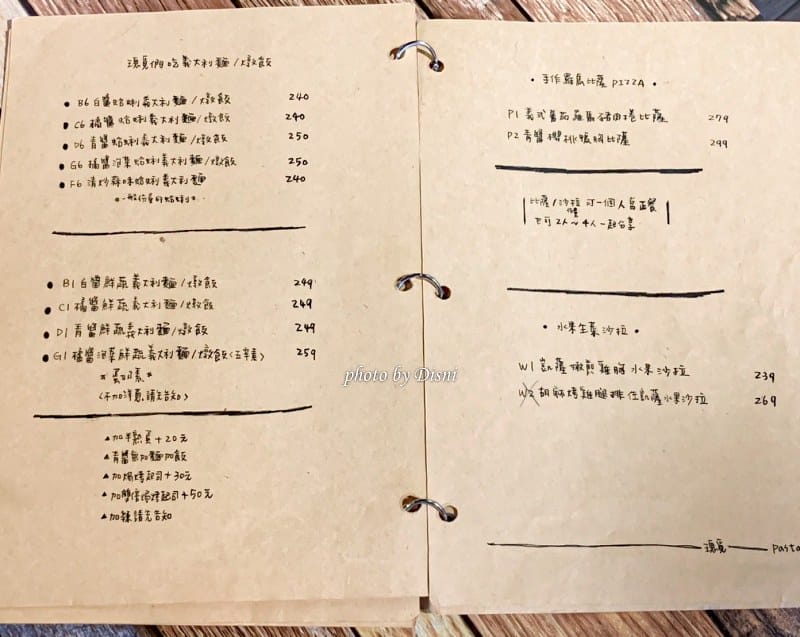 覓們吃義大利麵/燉飯
B6 白醬蛤蜊義大利麵/燉飯 240
C6 橘醬蛤蜊義大利麵/燉飯 240
D6 青醬蛤蜊義大利麵/燉飯 250
G6 橘醬泡菜蛤蜊義大利麵/燉飯 250
F6 清炒蒜味蛤蜊義大利麵 240
B1 白醬鮮蔬義大利麵/燉飯 249
C1 橘醬鮮蔬義大利麵/燉飯 249
D1 青醬鮮蔬義大利麵/燉飯 249
G1 橘醬泡菜鮮蔬義大利麵/燉飯(五辛素) 259
素可素
(不加洋蔥請告知)
▲加半熟蛋+20元
▲青醬無加麵加飯
▲加焗烤起司+30元
▲加雙倍焗烤起司+50元
▲加辣請先告知
• 手作羅馬比薩 PIZZA •
P1 義式番茄羅馬豬肉捲比薩 279
P2 青醬櫻桃鴨胸比薩 299
比薩/沙拉可一個人當正餐
也可2人~4人一起分享
• 水果生菜沙拉 •
W1 凱薩嫩煎雞胸水果沙拉 239
W2 胡麻烤雞腿排佐凱薩水果沙拉 269
覓 pasta
photo by Disni